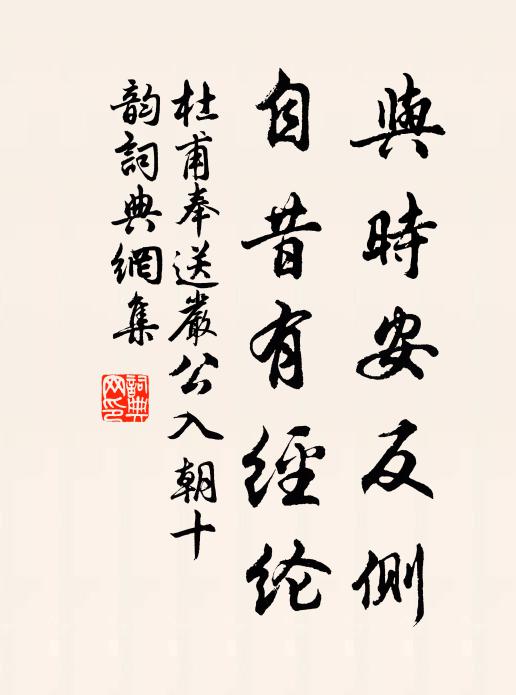 與時安反側
自昔有經纶
杜甫奉送嚴公入朝十
韵詞典網集
詞典
网印